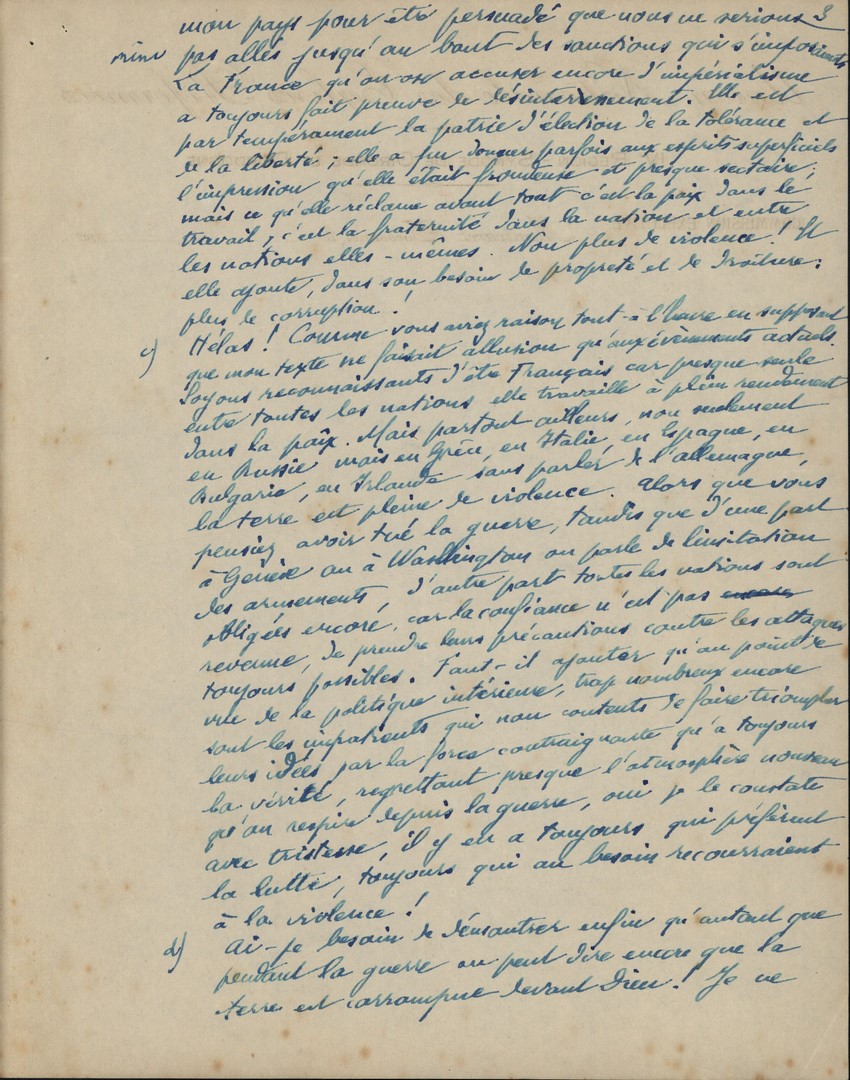 3
mon pays pour être persuadé que nous ne serions
même pas allés jusqu'au bout des sanctions qui s'imposaient
La France qu'on ose accuser encore d'impérialisme
a toujours fait preuve de désintéressement. Elle est
par tempérament la patrie d'élection de la tolérance et
de la liberté ; elle a pu donner parfois aux esprits superficiels
l'impression qu'elle était frondeuse et presque sectaire ;
mais ce qu'elle réclame avant tout c'est la paix dans le
travail ; c'est la fraternité dans la nation et entre
les nations elles-mêmes. Non plus de violence ! Et
elle ajoute, dans son besoin de propreté et de droiture :
plus de corruption !
c) Hélas ! Comme vous aviez raison tout-à-l'heure en supposant
que mon texte ne faisait allusion qu'aux évènements actuels.
Soyons reconnaissants d'être Français car presque seule
entre toutes les nations elle travaille à plein rendement
dans la paix. Mais partout ailleurs, non seulement
en Russie mais en Grèce, en Italie, en Espagne, en
Bulgarie, en Irlande sans parler de l'allemagne,
la terre est pleine de violence. Alors que vous
pensiez avoir tué la guerre, tandis que d'une part
à Genève ou à Washington on parle de limitation
des armements, d'autre part toutes les nations sont
obligées encore, car la confiance n'est pas encore
revenue, de prendre leurs précautions contre les attaques
toujours possibles. Faut-il ajouter qu'au point de
vue de la politique intérieure, trop nombreux encore
sont les impatients qui non contents de faire triompher
leurs idées par la force contraignante qu'a toujours
la vérité, regrettant presque l'atmosphère nouveau
qu'on respire depuis la guerre, oui je le constate
avec tristesse, il y en a toujours qui préfèrent
la lutte, toujours qui au besoin recourraient
à la violence !
d) Ai-je besoin de démontrer enfin qu'autant que
pendant la guerre on peut dire encore que la
terre est corrompue devant Dieu ! Je ne